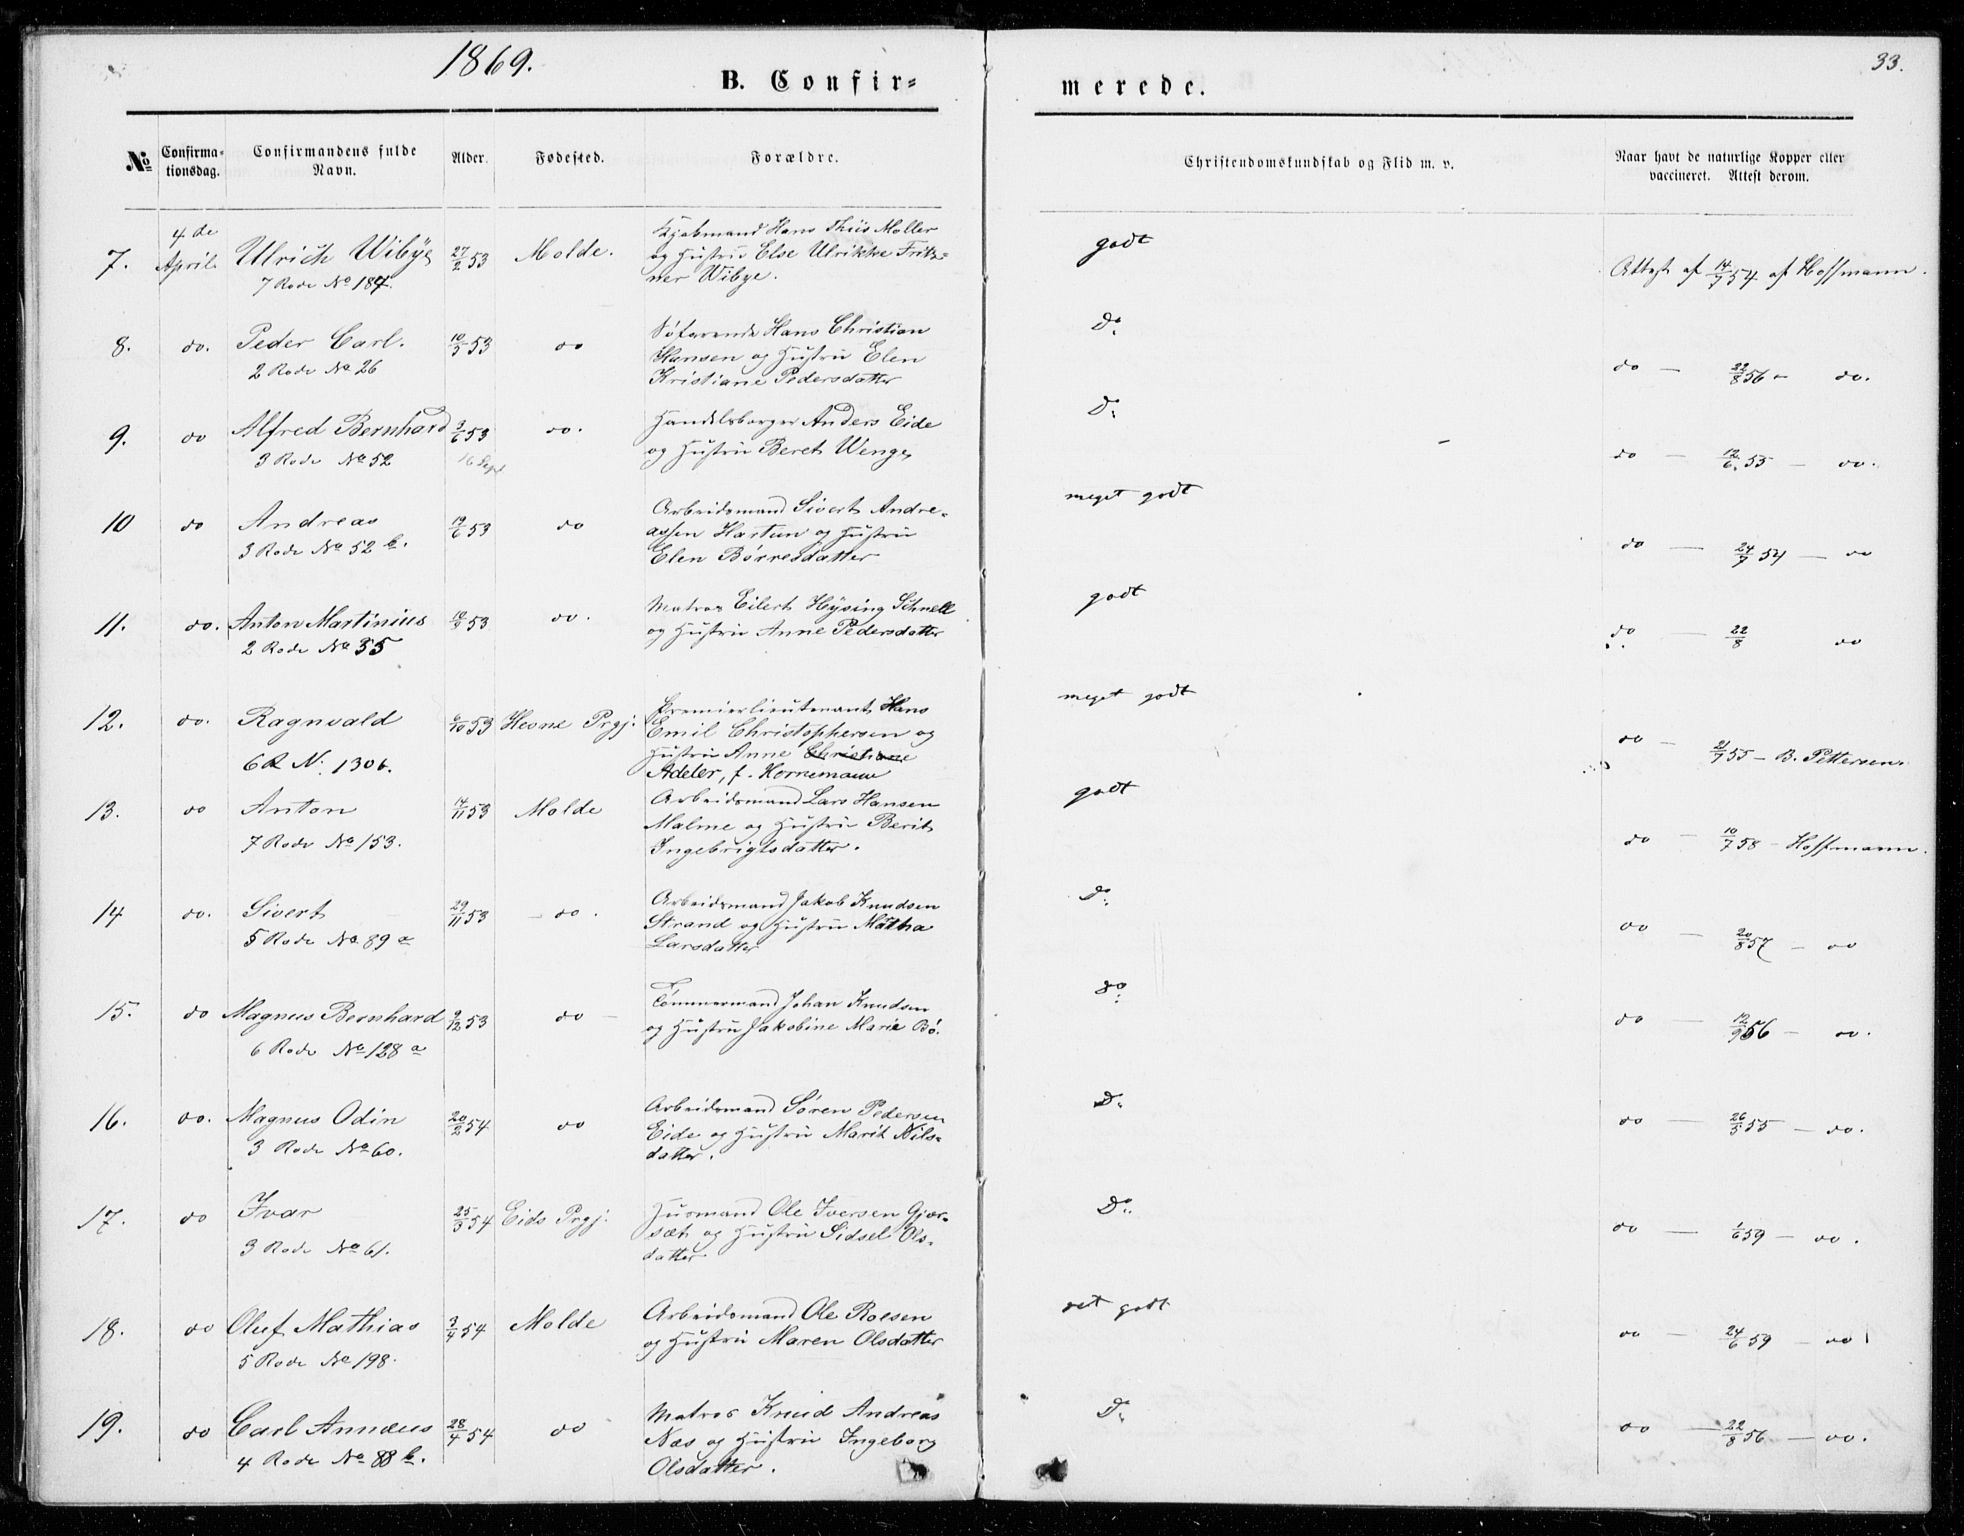 1869.
33.
B. Confir=
merede.
No
Confirma-
tionsdag.
Confirmandens fulde
Navn.
Alder.
Fødested.
Forældre.
Christendomskundskab og Flid m. v.
Naar havt de naturlige Kopper eller
vaccineret. Attest derom.
7.
4 de
April.
Ulrich Wibye
7 Rode No 184.
27/2 53
Molde.
Kjøbmand Hans Thiis Møller
og Hustru Else Ulrikke Fritz=
ner Wibye.
godt
Attest af 14/7 54 af Hoffmann.
8.
do.
Peder Carl.
2 Rode No 26
10/5 53
do
Søfarende Hans Christian
Hansen og Hustru Elen
Kristiane Pedersdatter
Do
do — 22/8 56 - do.
9.
do
Alfred Bernhard
3 Rode No 52
3/6 53
16 Sept
do.
Handelsborger Anders Eide
og Hustru Beret Wenge,
Do
do — 12/6. 55 — do.
10
do
Andreas
3 Rode No 52 b.
19/6 53
do
Arbeidsmand Sivert Andre-
assen Hartun og Hustru
Elen Børresdatter
meget godt
do — 24/7 54 — do
11.
do.
Anton Martinius
2 Rode No 35
10/9 53
do.
Matros Eilert Hysing Schnell
og Hustru Anne Pedersdatter
godt
do — 22/8 do
12.
do.
Ragnvald
6 R N. 130 b.
6/10 53
Hesne Prgj.
Premierlieutenant Hans
Emil Christophersen og
Hustru Anne Christiane
Adeler, f. Hornemann
meget godt
do — 21/7 55 — B. Pettersen.
13.
do
Anton
7 Rode No 153.
14/11 53
Molde
Arbeidsmand Lars Hansen
Malme og Hustru Berit
Ingebrigtsdatter.
godt
do — 10/7 58 - Hoffmann.
14
do.
Sivert
5 Rode No 89 a
29/11 53
do.
Arbeidsmand Jakob Knudsen
Strand og Hustru Mätha
Larsdatter
Do
do — 20/8 57 — do
15.
do
Magnus Bernhard
6 Rode No 128 a
9/12 53
do —
Tømmermand Johan Knudsen
og Hustru Jakobine Marie Bö.
do
do — 12/9 56 — do.
16.
do.
Magnus Odin
3 Rode No 60.
20/2 54
do
Arbeidsmand Sören Pedersen
Eide og Hustru Marit Nils=
datter.
Do
do — 26/5 55 — do.
17.
do
Ivar
3 Rode No 61.
25/3 54
Eids Prgj.
Husmand Ole Iversen Gjør-
sæt og Hustru Sidsel Ols-
datter
Do
do — 1/6 59 — do.
18.
do
Oluf Mathias
5 Rode No 198.
3/4 54
Molde
Arbeidsmand Ole Roesen
og Hustru Maren Olsdatter
ret godt
do — 24/6 59 — do
19.
do
Carl Annæus
4 Rode No 88 b.
28/4 54
do
Matros Knud Andreas
Næs og Hustru Ingeborg
Olsdatter.
Do
do — 22/8 56 — do.